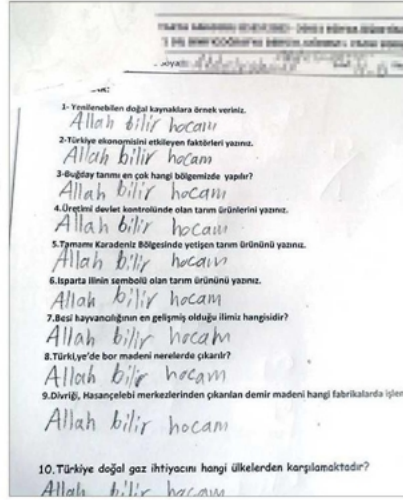 1- Yenilenebilen doğal kaynaklara örnek veriniz.
Allah bilir hocam
2-Türkiye ekonomisini etkileyen faktörleri yazınız.
Allah bilir hocam
3-Buğday tarımı en çok hangi bölgemizde yapılır?
Allah bilir hocam
4.Üretimi devlet kontrolünde olan tarım ürünlerini yazınız.
Allah bilir hocam
5.Tamamı Karadeniz Bölgesinde yetişen tarım ürününü yazınız.
Allah bilir hocam
6.Isparta ilinin sembolü olan tarım ürününü yazınız.
Allah bilir hocam
7.Besi hayvancılığının en gelişmiş olduğu ilimiz hangisidir?
Allah bilir hocam
8.Türki,ye'de bor madeni nerelerde çıkarılır?
Allah bilir hocam
9.Divriği, Hasançelebi merkezlerinden çıkarılan demir madeni hangi fabrikalarda işlen
Allah bilir hocam
10.Türkiye doğal gaz ihtiyacını hangi ülkelerden karşılamaktadır?
Allah bilir hocam